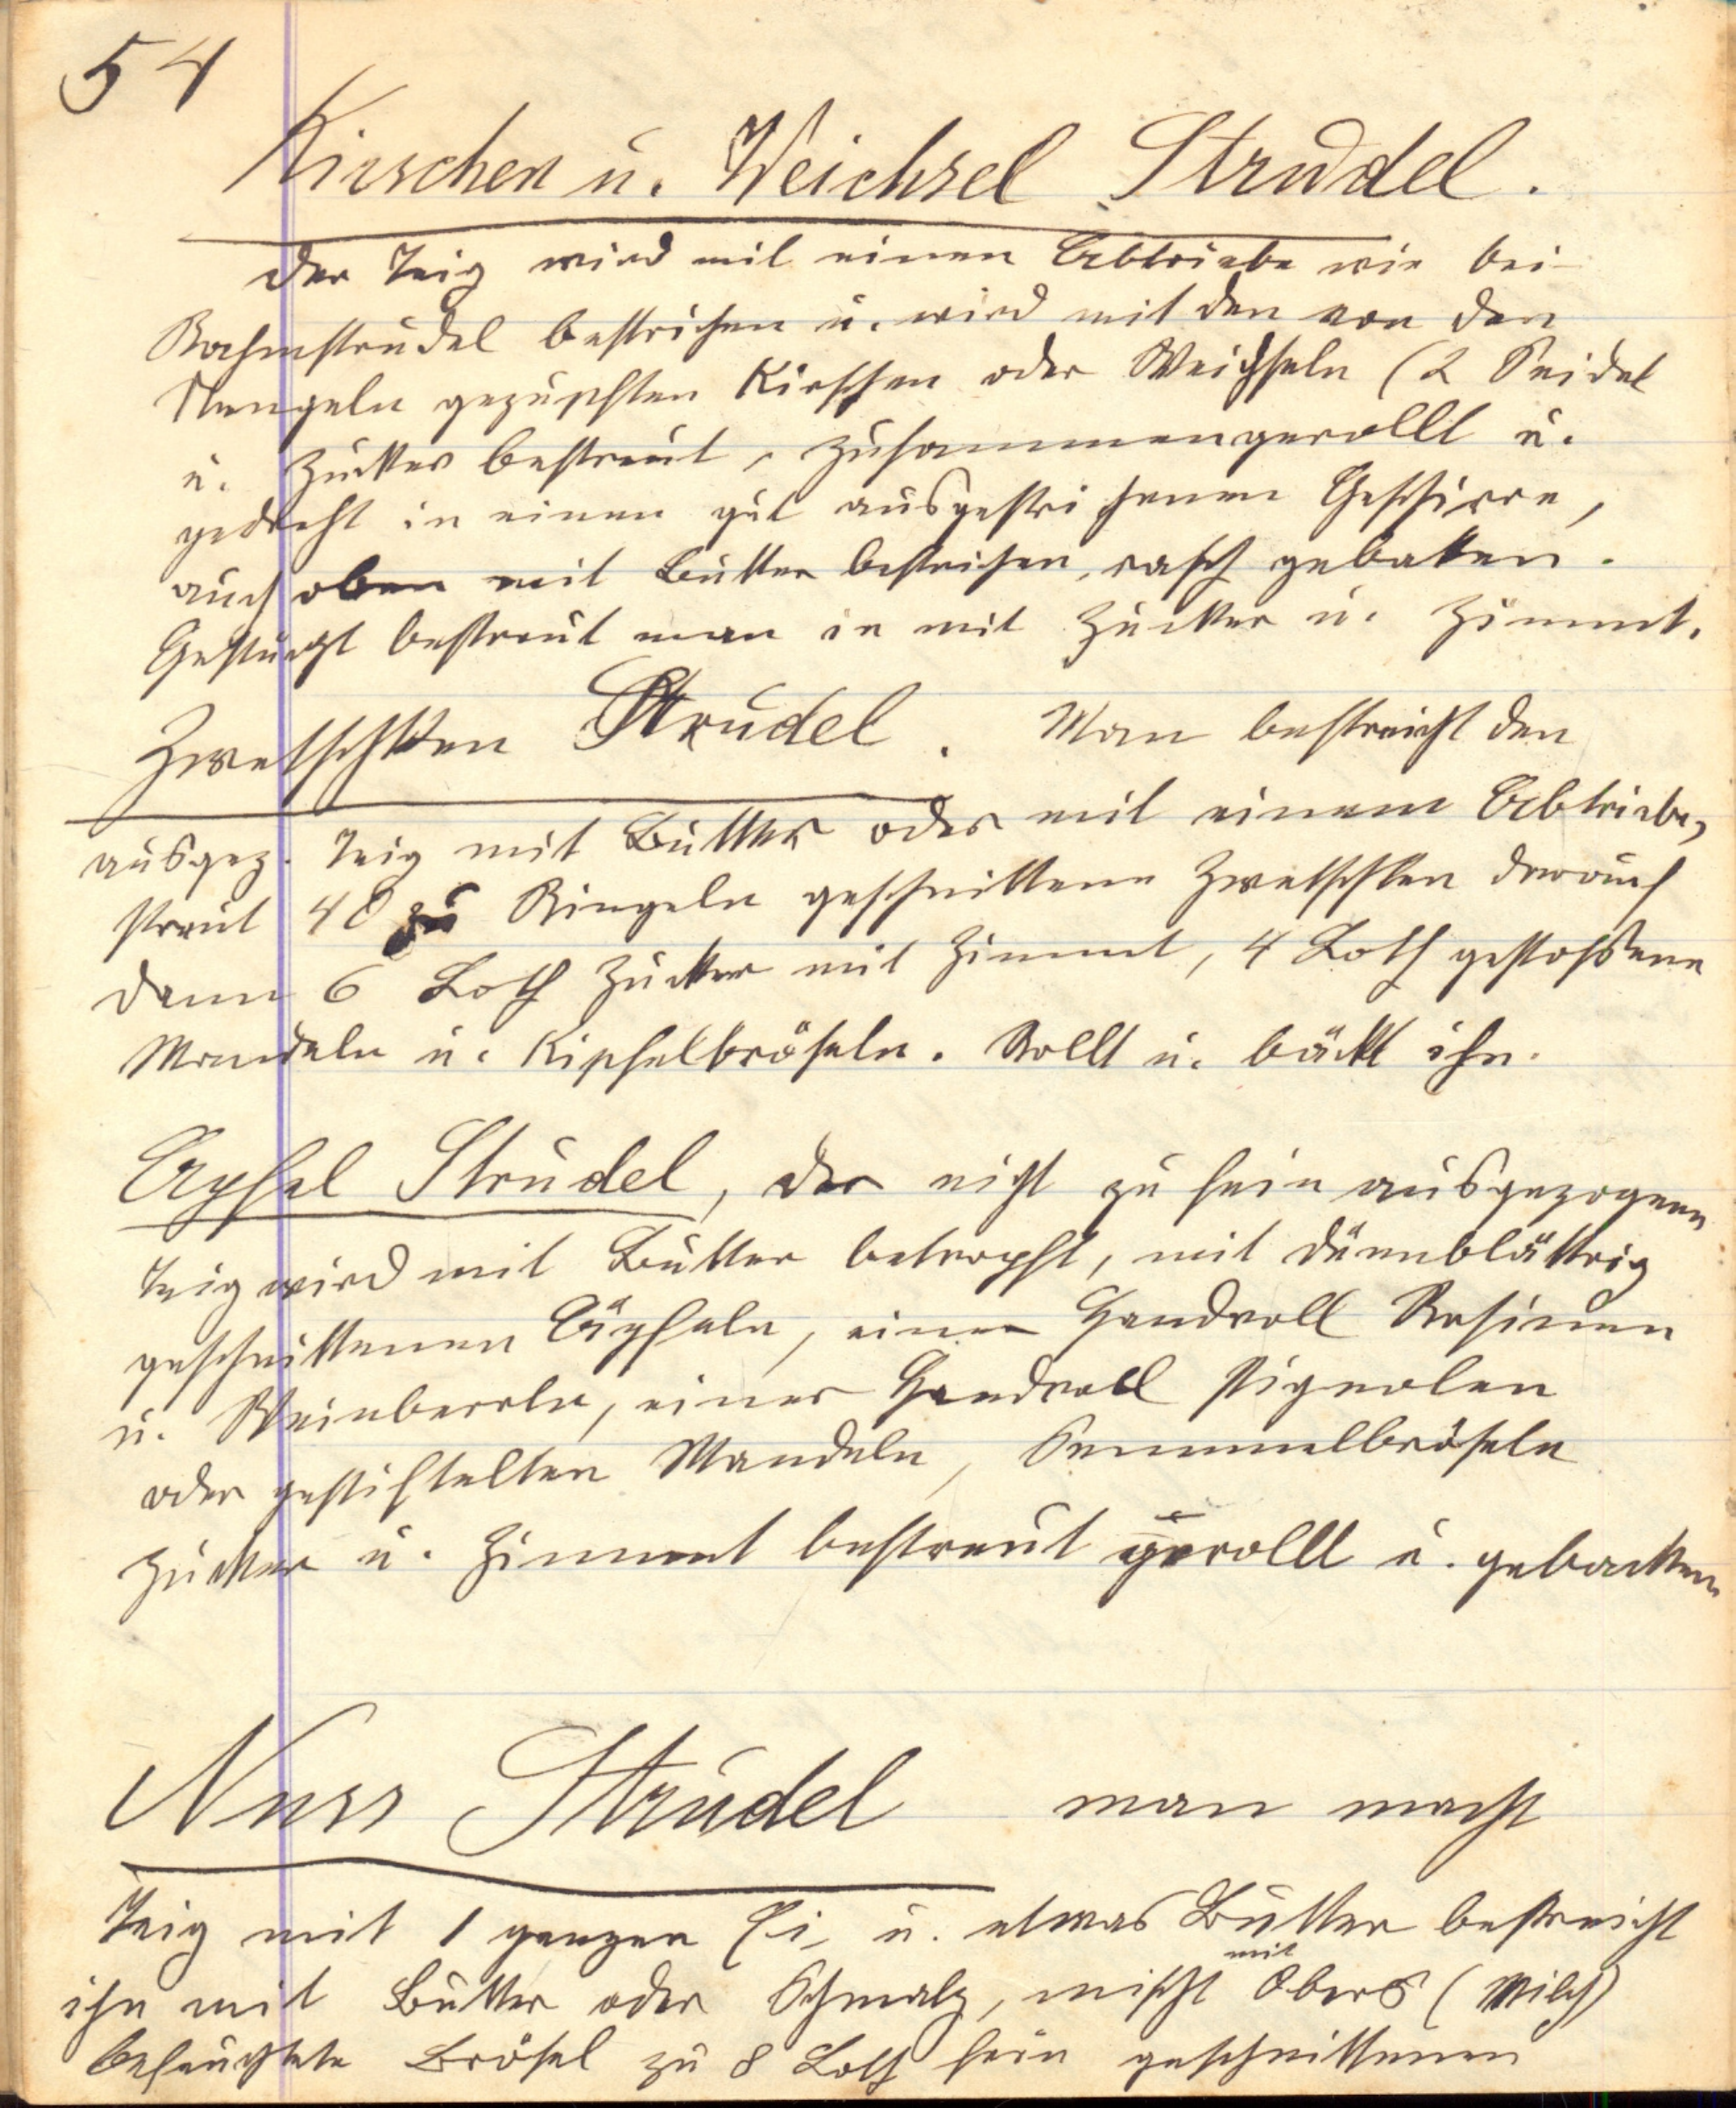 54
Kirschen u. Weichsel Strudel.
Der Teig wird mit einen Abtriebe wie bei
Rahmstrudel bestrichen u. wird mit den von den
Stengeln gezupften Kirschen oder Weichseln (2 Seidel
u. Zucker bestreut, zusammengerollt u.
gedreht in einen gut ausgestrichenen Geschirre,
auch oben mit Butter bestrichen, rasch gebaken.
Gestürzt bestreut man in mit Zucker u. Zimmt.
Zwetschken Strudel. Man bestreicht den
ausgez. Teig mit Butter oder mit einem Abtriebe,
streut 40 zu Ringeln geschnittene Zwetschken darauf
dann 6 Loth Zucker mit Zimmt, 4 Loth gestoßene
Mandeln u. Kipfelbröseln. Rollt u. bäckt ihn.
Apfel Strudel, der nicht zu fein ausgezogene
Teig wird mit Butter betropft, mit dünnblättrig
geschnittenen Äpfeln, einer Handvoll Rosinen
u. Weinberln, einer Handvoll Pignolen
oder gestiftelten Mandeln, Semmelbröseln
Zucker u. Zimmt bestreut gerollt u. gebacken
Nuss Strudel man macht
Teig mit 1 ganzen Ei, u. etwas Butter bestreicht
ihn mit Butter oder Schmalz, mischt mit Obers (Milch)
befeuchtete Brösel zu 8 Loth fein geschnittenen